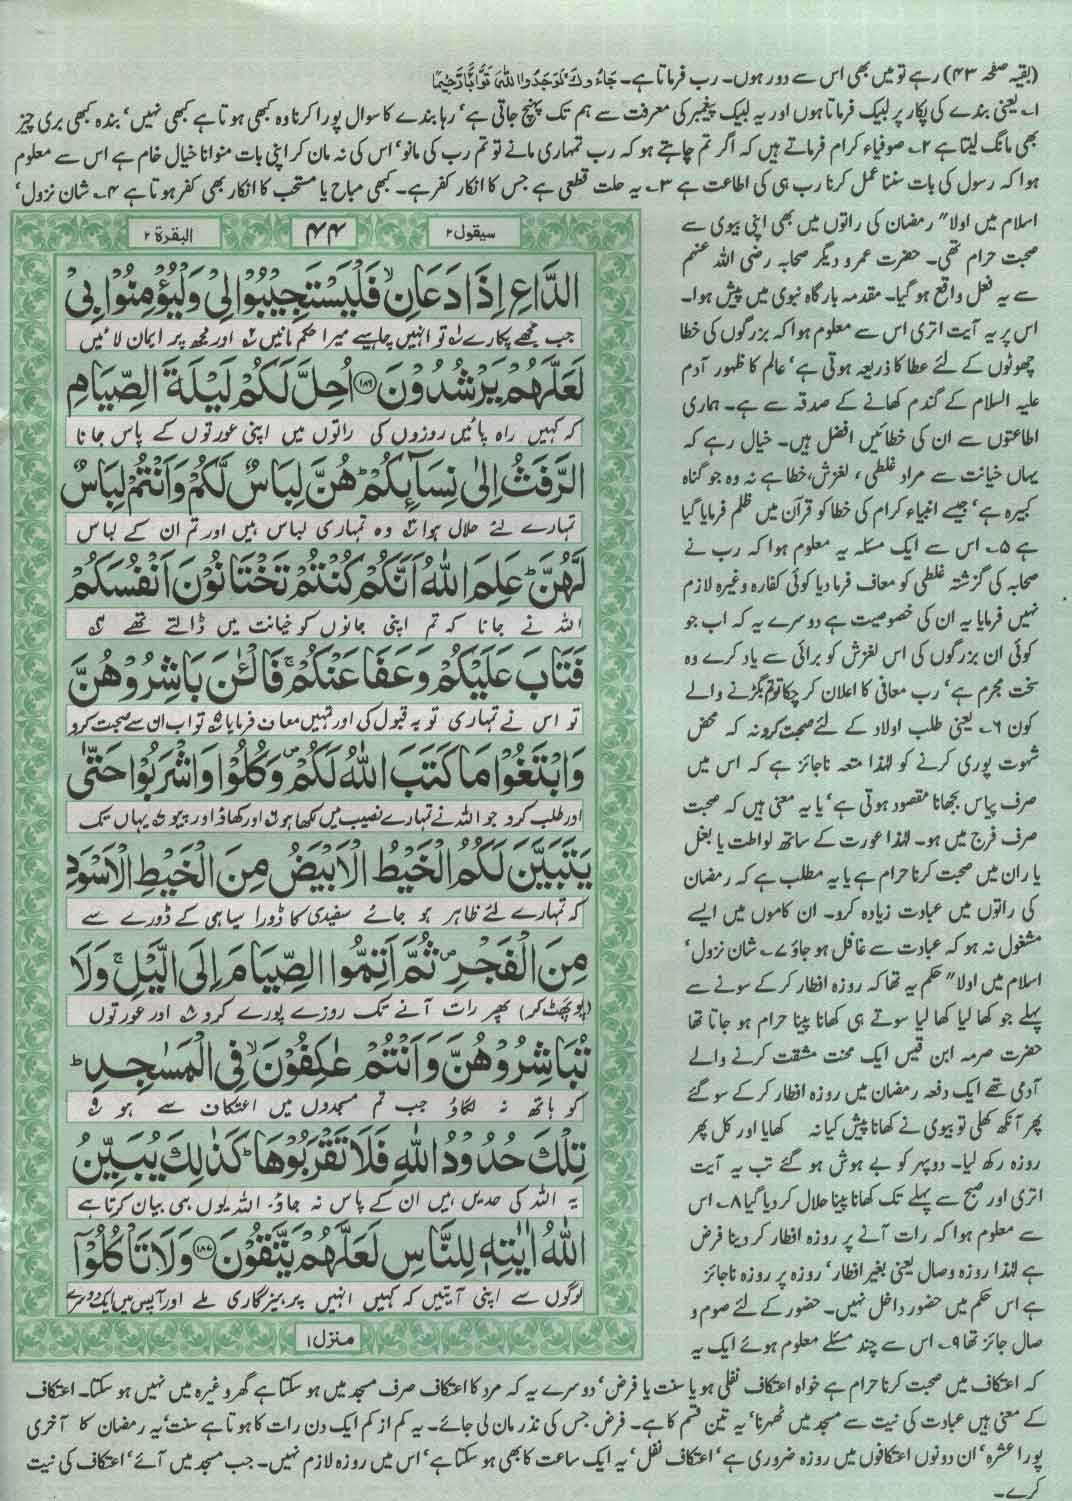 (بقیہ صفحہ ۴۳) رہے تو میں بھی اس سے دور ہوں۔ رب فرماتا ہے۔ جَاءُوكَ لَوَجَدُوا اللّٰهَ تَوَّابًا رَّحِيمًا
۱۔ یعنی بندے کی پکار پر لبیک فرماتا ہوں اور یہ لبیک پیغمبر کی معرفت سے ہم تک پہنچ جاتی ہے‘ رہا بندے کا سوال پورا کرنا وہ کبھی ہوتا ہے کبھی نہیں‘ بندہ کبھی بری چیز
بھی مانگ لیتا ہے ۲۔ صوفیاء کرام فرماتے ہیں کہ اگر تم چاہتے ہو کہ رب تمہاری مانے تو تم رب کی مانو‘ اس کی نہ مان کر اپنی بات منوانا خیال خام ہے اس سے معلوم
ہوا کہ رسول کی بات سننا عمل کرنا رب ہی کی اطاعت ہے ۳۔ یہ حلت قطعی ہے جس کا انکار کفر ہے۔ کبھی مباح یا مستحب کا انکار بھی کفر ہوتا ہے ۴۔ شان نزول‘
اسلام میں اولا" رمضان کی راتوں میں بھی اپنی بیوی سے
صحبت حرام تھی۔ حضرت عمر و دیگر صحابہ رضی اللہ عنہم
سے یہ فعل واقع ہو گیا۔ مقدمہ بارگاہ نبوی میں پیش ہوا۔
اس پر یہ آیت اتری اس سے معلوم ہوا کہ بزرگوں کی خطا
چھوٹوں کے لئے عطا کا ذریعہ ہوتی ہے‘ عالم کا ظہور آدم
علیہ السلام کے گندم کھانے کے صدقہ سے ہے۔ ہماری
اطاعتوں سے ان کی خطائیں افضل ہیں۔ خیال رہے کہ
یہاں خیانت سے مراد غلطی، لغزش، خطا ہے نہ وہ جو گناہ
کبیرہ ہے‘ جیسے انبیاء کرام کی خطا کو قرآن میں ظلم فرمایا گیا
ہے ۵۔ اس سے ایک مسئلہ یہ معلوم ہوا کہ رب نے
صحابہ کی گزشتہ غلطی کو معاف فرما دیا کوئی کفارہ وغیرہ لازم
نہیں فرمایا یہ ان کی خصوصیت ہے دوسرے یہ کہ اب جو
کوئی ان بزرگوں کی اس لغزش کو برائی سے یاد کرے وہ
سخت مجرم ہے‘ رب معافی کا اعلان کر چکا تو تم بگڑنے والے
کون ۶۔ یعنی طلب اولاد کے لئے صحبت کرو نہ کہ محض
شہوت پوری کرنے کو لہٰذا متعہ ناجائز ہے کہ اس میں
صرف پیاس بجھانا مقصود ہوتی ہے‘ یا یہ معنی ہیں کہ صحبت
صرف فرج میں ہو۔ لہٰذا عورت کے ساتھ لواطت یا بغل
یا ران میں صحبت کرنا حرام ہے یا یہ مطلب ہے کہ رمضان
کی راتوں میں عبادت زیادہ کرو۔ ان کاموں میں ایسے
مشغول نہ ہو کہ عبادت سے غافل ہو جاؤ ۷۔ شان نزول‘
اسلام میں اولا" حکم یہ تھا کہ روزہ افطار کر کے سونے سے
پہلے جو کھا لیا کھا لیا سوتے ہی کھانا پینا حرام ہو جاتا تھا
حضرت صرمہ ابن قیس ایک محنت مشقت کرنے والے
آدمی تھے ایک دفعہ رمضان میں روزہ افطار کر کے سو گئے
پھر آنکھ کھلی تو بیوی نے کھانا پیش کیا نہ کھایا اور کل پھر
روزہ رکھ لیا۔ دوپہر کو بے ہوش ہو گئے تب یہ آیت
اتری اور صبح سے پہلے تک کھانا پینا حلال کر دیا گیا ۸۔ اس
سے معلوم ہوا کہ رات آنے پر روزہ افطار کر دینا فرض
ہے لہٰذا روزہ وصال یعنی بغیر افطار‘ روزہ پر روزہ ناجائز
ہے اس حکم میں حضور داخل نہیں۔ حضور کے لئے صوم و
صال جائز تھا ۹۔ اس سے چند مسئلے معلوم ہوئے ایک یہ
سیقول ۲
۴۴
البقرة ۲
الدَّاعِ اِذَا دَعَانِ ۙ فَلْيَسْتَجِيْبُوْا لِيْ وَلْيُؤْمِنُوْا بِيْ
جب مجھے پکارے ۱ تو انہیں چاہیے میرا حکم مانیں ۲ اور مجھ پر ایمان لائیں
لَعَلَّهُمْ يَرْشُدُوْنَ ۝۱۸۶ اُحِلَّ لَكُمْ لَيْلَةَ الصِّيَامِ
کہ کہیں راہ پائیں روزوں کی راتوں میں اپنی عورتوں کے پاس جانا
الرَّفَثُ اِلٰى نِسَآئِكُمْ ؕ هُنَّ لِبَاسٌ لَّكُمْ وَاَنْتُمْ لِبَاسٌ
تمہارے لئے حلال ہوا ۳ وہ تمہاری لباس ہیں اور تم ان کے لباس
لَّهُنَّ ؕ عَلِمَ اللّٰهُ اَنَّكُمْ كُنْتُمْ تَخْتَانُوْنَ اَنْفُسَكُمْ
اللہ نے جانا کہ تم اپنی جانوں کو خیانت میں ڈالتے تھے ۴
فَتَابَ عَلَيْكُمْ وَعَفَا عَنْكُمْ ۚ فَالْـٰٔنَ بَاشِرُوْهُنَّ
تو اس نے تمہاری توبہ قبول کی اور تمہیں معاف فرمایا ۵ تو اب ان سے صحبت کرو
وَابْتَغُوْا مَا كَتَبَ اللّٰهُ لَكُمْ ۪ وَكُلُوْا وَاشْرَبُوْا حَتّٰى
اور طلب کرو جو اللہ نے تمہارے نصیب میں لکھا ہو ۶ اور کھاؤ اور پیو ۷ یہاں تک
يَتَبَيَّنَ لَكُمُ الْخَيْطُ الْاَبْيَضُ مِنَ الْخَيْطِ الْاَسْوَدِ
کہ تمہارے لئے ظاہر ہو جائے سفیدی کا ڈورا سیاہی کے ڈورے سے
مِنَ الْفَجْرِ ۪ ثُمَّ اَتِمُّوا الصِّيَامَ اِلَى الَّيْلِ ۚ وَلَا
(پو پھٹ کر) پھر رات آنے تک روزے پورے کرو ۸ اور عورتوں
تُبَاشِرُوْهُنَّ وَاَنْتُمْ عٰكِفُوْنَ ۙ فِى الْمَسٰجِدِ ؕ
کو ہاتھ نہ لگاؤ جب تم مسجدوں میں اعتکاف سے ہو ۹
تِلْكَ حُدُوْدُ اللّٰهِ فَلَا تَقْرَبُوْهَا ؕ كَذٰلِكَ يُبَيِّنُ
یہ اللہ کی حدیں ہیں ان کے پاس نہ جاؤ۔ اللہ یوں ہی بیان کرتا ہے
اللّٰهُ اٰيٰتِهٖ لِلنَّاسِ لَعَلَّهُمْ يَتَّقُوْنَ ۝۱۸۷ وَلَا تَاْكُلُوْٓا
لوگوں سے اپنی آیتیں کہ کہیں انہیں پرہیزگاری ملے اور آپس میں ایک دوسرے
منزل ۱
کہ اعتکاف میں صحبت کرنا حرام ہے خواہ اعتکاف نفلی ہو یا سنت یا فرض‘ دوسرے یہ کہ مرد کا اعتکاف صرف مسجد میں ہو سکتا ہے گھر وغیرہ میں نہیں ہو سکتا۔ اعتکاف
کے معنی ہیں عبادت کی نیت سے مسجد میں ٹھہرنا‘ یہ تین قسم کا ہے۔ فرض جس کی نذر مان لی جائے۔ یہ کم از کم ایک دن رات کا ہوتا ہے سنت‘ یہ رمضان کا آخری
پورا عشرہ‘ ان دونوں اعتکافوں میں روزہ ضروری ہے‘ اعتکاف نفل‘ یہ ایک ساعت کا بھی ہو سکتا ہے‘ اس میں روزہ لازم نہیں۔ جب مسجد میں آئے‘ اعتکاف کی نیت
کرے۔